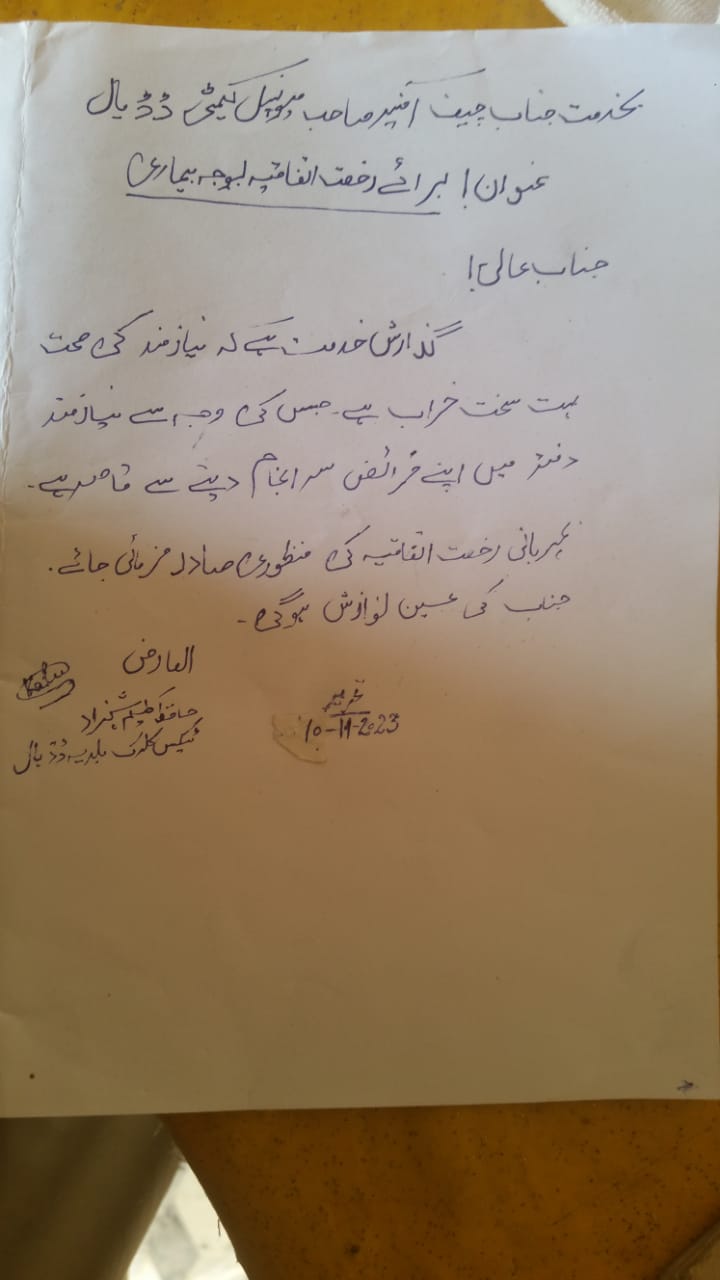 بخدمت جناب چیف آفیسر صاحب میونسپل کمیٹی ڈڈیال
عنوان! برائے رخصت اتفاقیہ بوجہ بیماری
جناب عالی!
گذارش خدمت ہے کہ نیازمند کی صحت
بہت سخت خراب ہے۔ جس کی وجہ سے نیازمند
دفتر میں اپنے فرائض سرانجام دینے سے قاصر ہے۔
بمہربانی رخصت اتفاقیہ کی منظوری صادر فرمائی جائے۔
جناب کی عین نوازش ہوگی۔
العارض
شہزاد
ٹیکس کلرک بلدیہ ڈڈیال
تحریر
10-11-2023